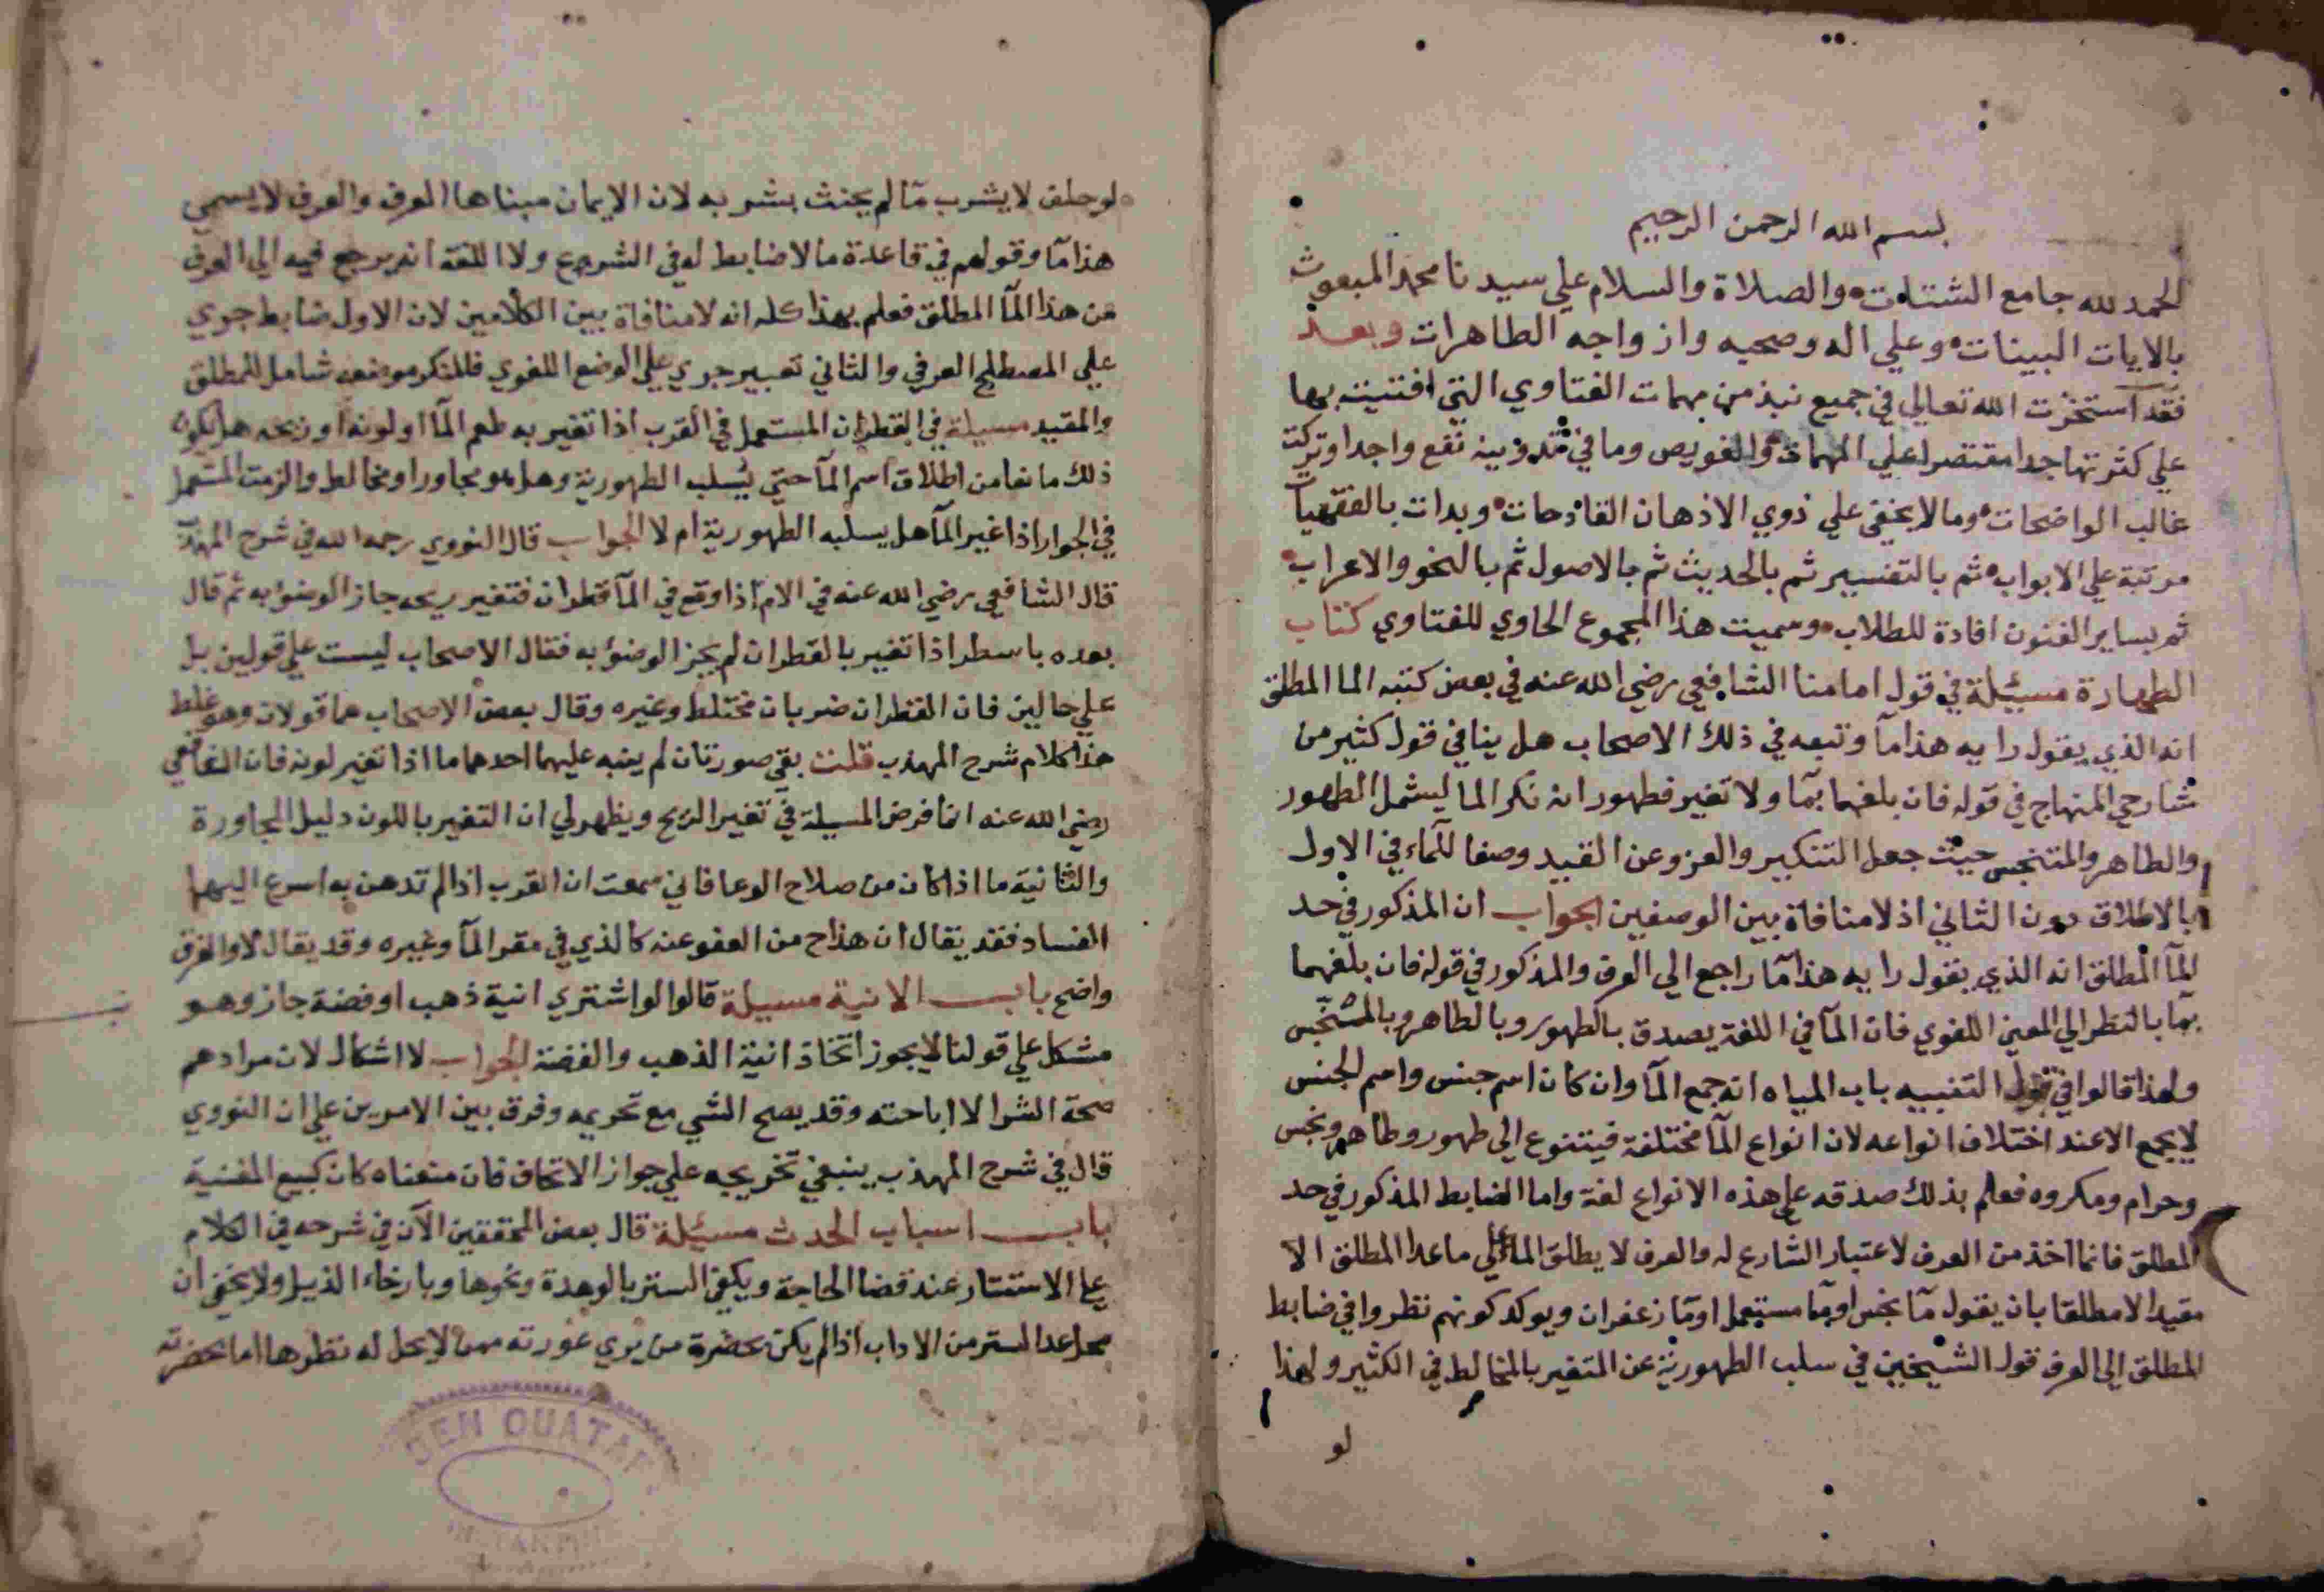 بسم الله الرحمن الرحيم
الحمد لله جامع الشتات والصلاة والسلام علي سيدنا محمد المبعوث
بالايات البينات وعلي اله وصحبه وازواجه الطاهرات وبعد
فقد استخرت الله تعالي في جميع نبذ من مهمات الفتاوي التي افتيت بها
علي كثرتها جدا مقتصرا علي المهمات والعويص وما في تدوينه نفع واجدا وتركت
غالب الواضحات وما لا يخفي علي ذوي الاذهان القادحات وبدات بالفقهيات
مرتبة علي الابواب ثم بالتفسير ثم بالحديث ثم بالاصول ثم بالنحو والاعراب
ثم بساير الفنون افادة للطلاب وسميت هذا المجموع الحاوي للفتاوي كتاب
الطهارة مسيئلة في قول امامنا الشافعي رضي الله عنه في بعض كتبه الما المطلق
انه الذي يقول رايه هذا مآ وتبعه في ذلك الاصحاب هل ينافي قول كثير من
شارحي المنهاج في قوله فان بلغهما بمآ ولا تغير فطهور انه نكر الما ليشمل الطهور
والطاهر والمتنجس حيث جعل التنكير والعزو عن القيد وصفا للمآء في الاول
بالاطلاق دون الثاني اذ لا منافاة بين الوصفين الجواب ان المذكور في حد
المآ المطلق انه الذي يقول رايه هذا مآ راجع الي العرف والمذكور في قوله فان بلغهما
بمآ بالنظر الي المعني اللغوي فان المآ في اللغة يصدق بالطهور وبالطاهر وبالمتنجس
ولهذا قالوا في قول التنبيه باب المياه انه جمع المآ وان كان اسم جنس واسم الجنس
لا يجمع الا عند اختلاف انواعه لان انواع المآ مختلفة فيتنوع الي طهور وطاهر ونجس
وحرام ومكروه فعلم بذلك صدقه علي هذه الانواع لغة واما الضابط المذكور في حد
المطلق فانما اخذ من العرف لاعتبار الشارع له والعرف لا يطلق الما علي ما عدا المطلق الا
مقيدا لا مطلقا بان يقول مآ نجس او مآ مستعمل او مآ زعفران ويوكد كونهم نظروا في ضابط
المطلق الي العرف قول الشيخين في سلب الطهورية عن المتغير بالمخالط في الكثير ولهذا
لو
لو حلف لا يشرب مآ لم يحنث بشربه لان الايمان مبناها العرف والعرف لا يسمي
هذا مآ وقولهم في قاعدة ما لا ضابط له في الشرع ولا اللغة انه يرجع فيه الي العرف
من هذا المآ المطلق فعلم بهذا كله انه لا منافاة بين الكلامين لان الاول ضابط جري
علي المصطلح العرفي والثاني تعبير جري علي الوضع اللغوي فالمنكر موضعه شامل للمطلق
والمقيد مسيلة في القطران المستعمل في القرب اذا تغير به طعم المآ او لونه او ريحه هل يكون
ذلك مانعا من اطلاق اسم المآ حتي يسلب الطهورية وهل هو مجاور او مخالط والزفت المستعمل
في الجرار اذا غير المآ هل يسلبه الطهورية ام لا الجواب قال النووي رحمه الله في شرح المهذب
قال الشافعي رضي الله عنه في الام اذا وقع في المآ قطران فتغير ريحه جاز الوضوء به ثم قال
بعده باسطر اذا تغير بالقطران لم يجز الوضوء به فقال الاصحاب ليست علي قولين بل
علي حالين فان القطران ضربان مختلط وغيره وقال بعض الاصحاب هما قولان وهو غلط
هذا كلام شرح المهذب قلت بقي صورتان لم ينبه عليهما احدهما ما اذا تغير لونه فان الشافعي
رضي الله عنه انما فرض المسيلة في تغير الريح ويظهر لي ان التغير باللون دليل المجاورة
والثانية ما اذا كان من صلاح الوعا فاني سمعت ان القرب اذا لم تدهن به اسرع اليها
الفساد فقد يقال ان هذا ح من العفو عنه كالذي في مقر المآ وغيره وقد يقال لا والفرق
واضح باب الانية مسيلة قالوا لو اشتري انية ذهب او فضة جاز وهو
مشكل علي قولنا لا يجوز اتخاذ انية الذهب والفضة الجواب لا اشكال لان مرادهم
صحة الشرا لا اباحته وقد يصح الشي مع تحريمه وفرق بين الامرين علي ان النووي
قال في شرح المهذب ينبغي تخريجه علي جواز الاتخاذ فان منعناه كان كبيع المغنية
باب اسباب الحدث مسيئلة قال بعض المحققين الآن في شرحه في الكلام
علي الاستتار عند قضا الحاجة ويكفي الستر بالوهدة ونحوها وبارخاء الذيل ولا يخفي ان
محل عد الستر من الاداب اذا لم يكن بحضرة من يري عورته ممن لا يحل له نظرها اما بحضرته
BEN OUATAF